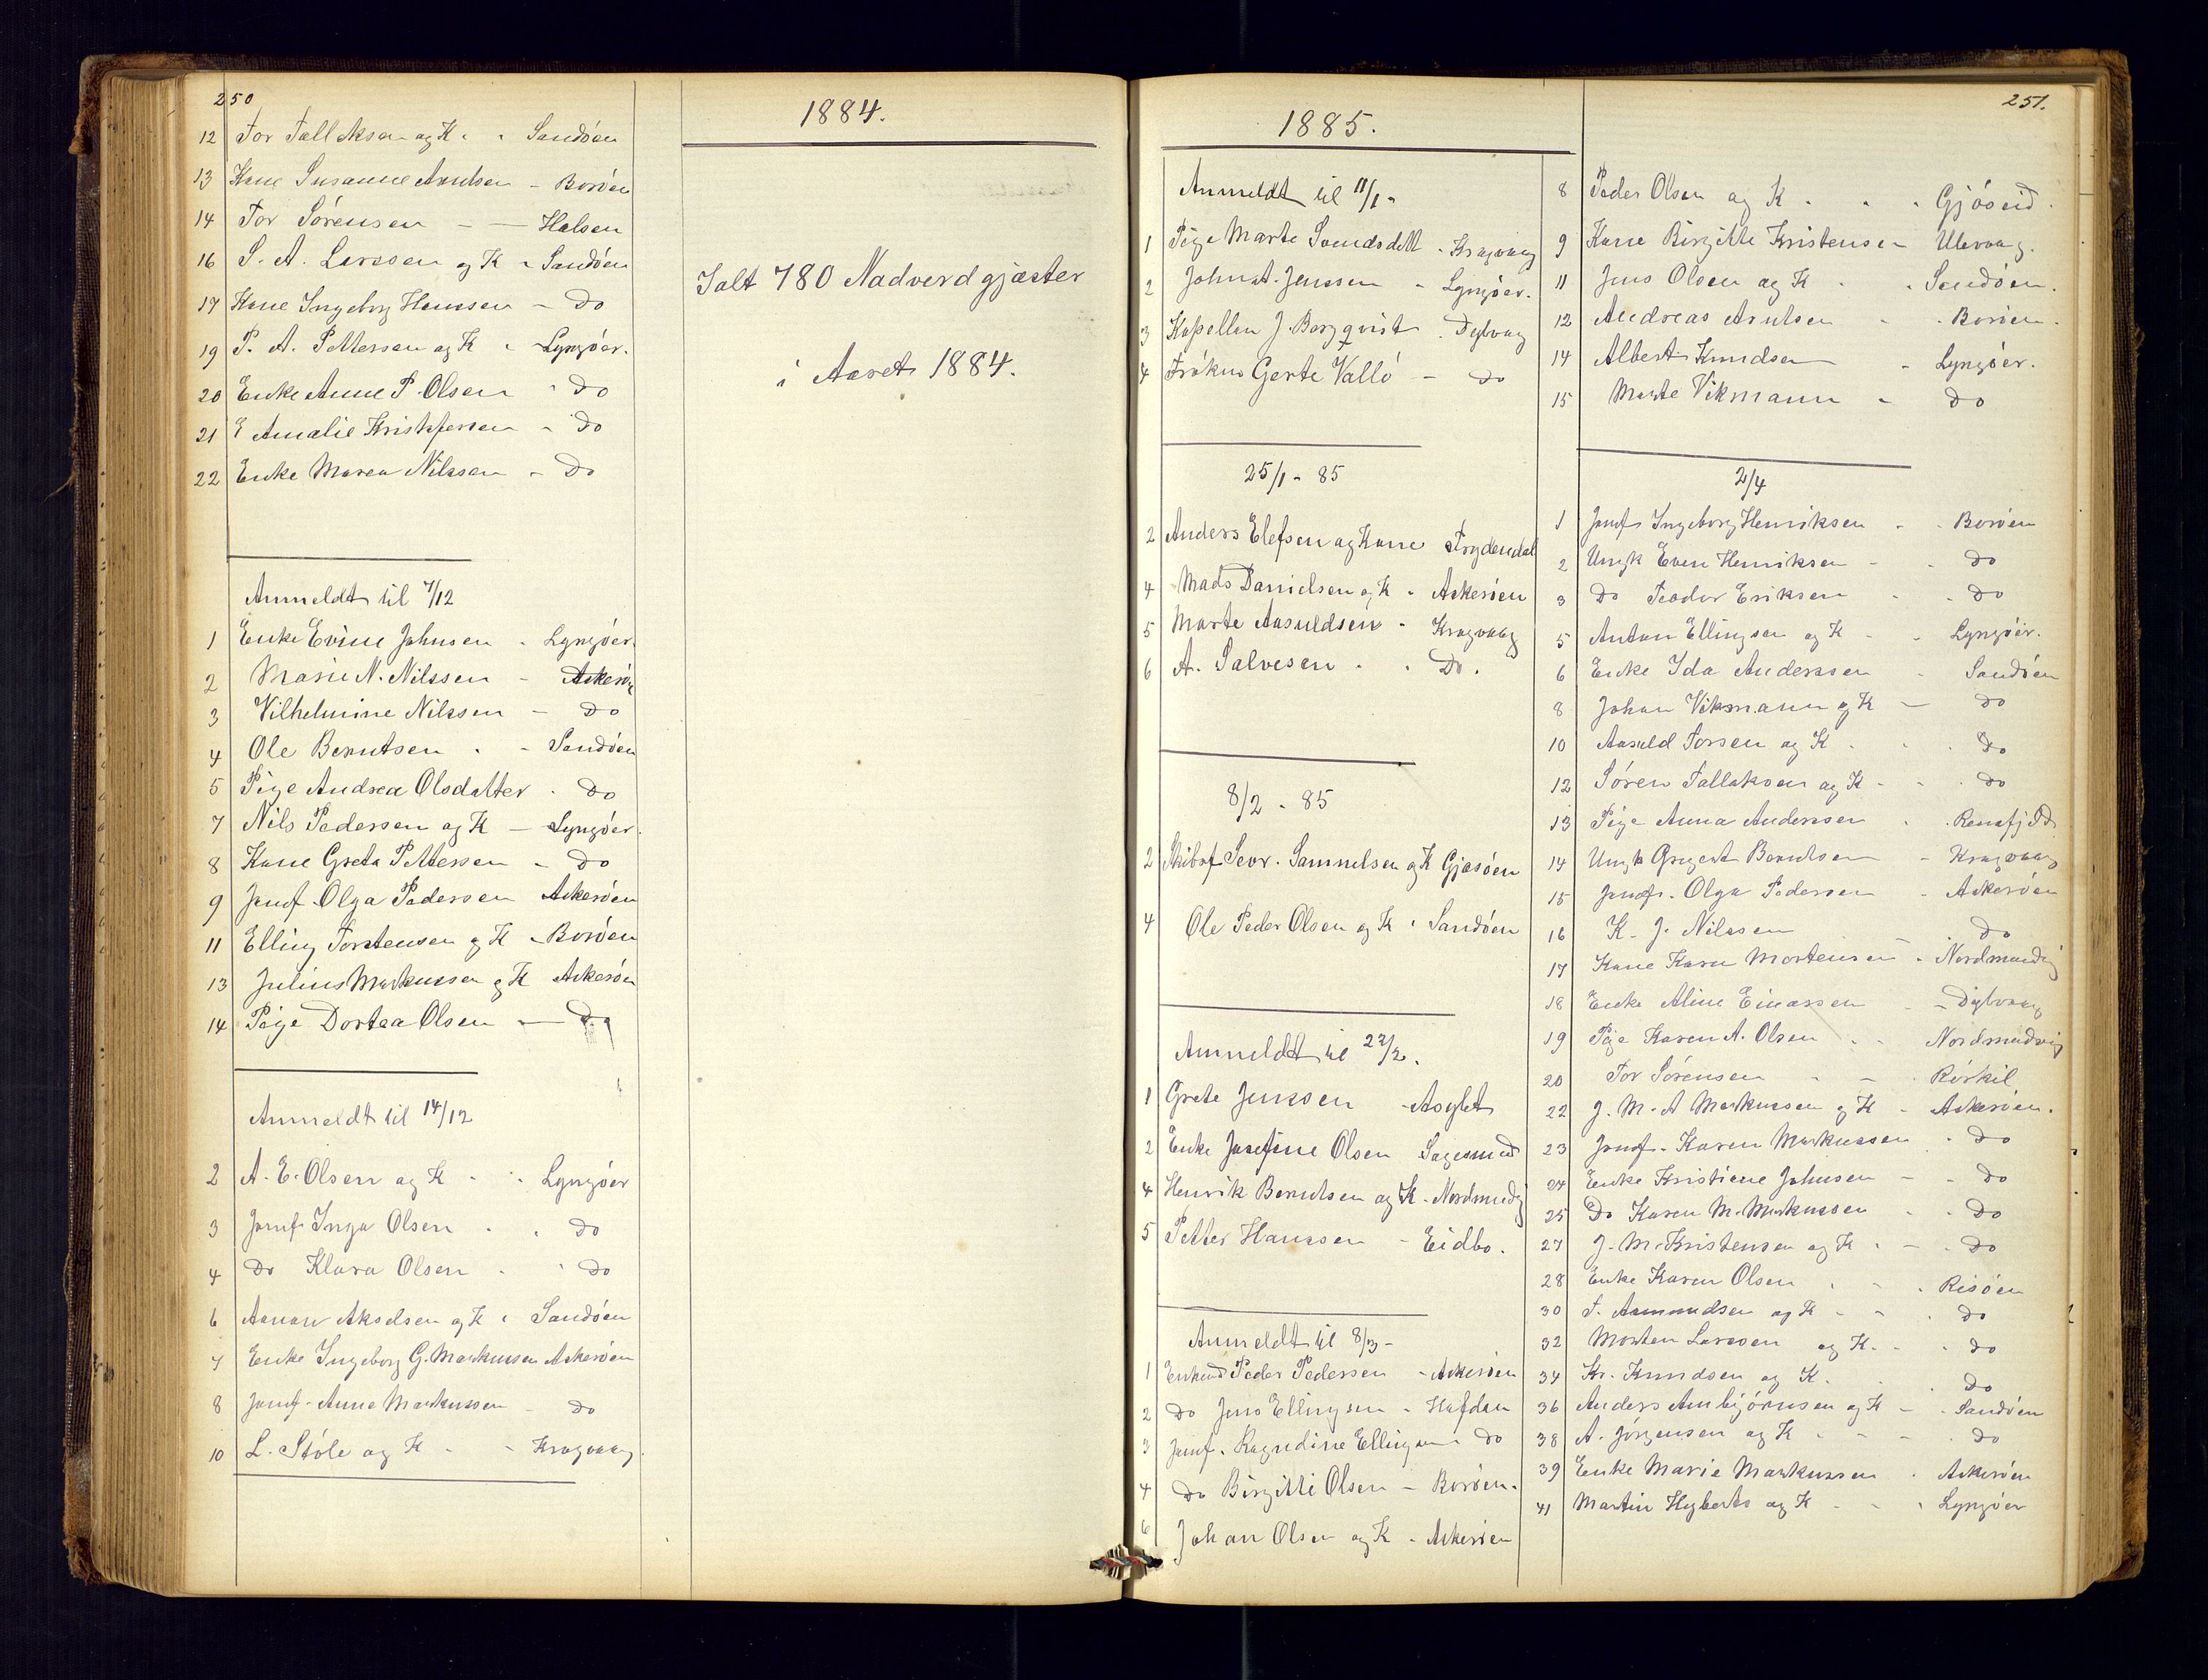 250
12 Tor Tallaksen og K. Sandöen
13 Kone Susanne Arntsen - Boröen
14 Tor Sörensen - — Holsen
16 S. A. Larssen og K - Sandöen
17 Kone Ingeborg Hansen - Do
19 P. A. Pettersen og K - Lyngöer.
20 Enke Anne P. Olsen - Do
21 E Amalie Kristofersen - Do
22 Enke Maren Nilssen - Do
Anmeldt til 7/12
1 Enke Evine Johnsen - Lyngöer.
2 Marie N. Nilssen - Askerön
3 Vilhelmine Nilssen - Do
4 Ole Berntsen - Sandöen
5 Pige Andrea Olsdatter - Do
7 Nils Pedersen og K — Lyngöer.
8 Kone Grete Pettersen - Do
9 Jomf. Olga Pedersen Askeröen
11 Elling Torstensen og K - Boröen
13 Julius Markussen og K Askeröen
14 Pige Dortea Olsen — Do
Anmeldt til 14/12
2 A. E. Olsen og K - Lyngöer
3 Jomf Inga Olsen - Do
4 Do Klara Olsen - Do
6 Aanon Akselsen og K - Sandöen
7 Enke Ingeborg G. Markussen Askeröen
8 Jomf. Anne Markussen - Do
10 L. Stöle og K - - Kragvaag.
1884.
Ialt 780 Nadverdgjæster
i Aaret 1884.
1885.
Anmeldt til 11/1 -
1 Pige Marte Svendsdatt - Kragvaag
2 Johan A. Jenssen - Lyngöer.
3 Kapellan J. Bergqvist - Dybvaag
4 Fröken Gerte Vallö - Do
25/1 - 85
2 Anders Elefsen og Kone Frydendal
4 Mads Danielsen og K - Askeröen
5 Marte Aasuldsen - Kragvaag
6 A. Salvesen - - Do.
8/2 - 85
2 Skibsf Sevr. Samuelsen og K Gjesöen
4 Ole Peder Olsen og K - Sandöen
Anmeldt til 22/2.
1 Grete Jenssen - Asylet
2 Enke Josefine Olsen Sagesund
4 Henrik Berntsen og K - Nordmudvig
5 Petter Hanssen - Eidbo.
Anmeldt til 8/3 -
1 Enkemd Peder Pedersen - Askeröen
2 Do Jens Ellingsen - Hafdan
3 Jomf. Ragndine Ellingsen - Do
4 Do Birgitte Olsen - Boröen.
6 Johan Olsen og K - Askeröen
251.
8 Peder Olsen og K - - - Gjöseid.
9 Kone Birgitte Kristensen Ulevaag.
11 Jens Olsen og K - - Sandöen.
12 Andreas Arntsen - - Boröen.
14 Albert Knudsen - Lyngöer.
15 Marte Vikmann - Do
2/4
1 Jomf Ingeborg Henriksen - - Boröen
2 Ungk Even Henriksen - - Do
3 Do Teodor Eriksen - - Do
5 Anton Ellingsen og K - - Lyngöer.
6 Enke Ida Anderssen - Sandöen
8 Johan Vikmann og K — Do
10 Aasuld Torsen og K - - Do
12 Sören Tallaksen og K - - Do
13 Pige Anna Anderssen - Rensfjeld
14 Ungk Gregert Berntsen - Kragvaag
15 Jomfr. Olga Pedersen - Askeröen
16 K. J. Nilssen Do
17 Kone Karen Mortensen - Nordmudvig
18 Enke Aline Einarssen - Dybvaag
19 Pige Karen A. Olsen - - Nordmudvig
20 Tor Sörensen - - Rörkil
22 J. M. A Markussen og K - Askeröen.
23 Jomf. Karen Markussen - Do
24 Enke Kristiane Johnsen - - Do
25 Do Karen M. Markussen - - Do
27 J. M. Kristensen og K - - - Do
28 Enke Karen Olsen - - - Risöen
30 T. Aamundsen og K - - - Do
32 Morten Larssen og K. - - Do
34 Kr. Knudsen og K. - - Do
36 Anders Ambjörnsen og K - - Sandöen
38 A. Jörgensen og K - - - - Do
39 Enke Marie Markussen - Askeröen
41 Martin Hyberts og K - - - Lyngöer